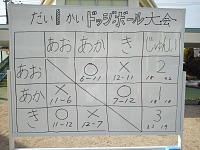 だい1かいドッジボール大会
あお あか き じゅんい
あお ○ 6-11 × 12-11 2
あか × 11-6 ○ 7-12 1
き ○ 11-12 × 12-7 3